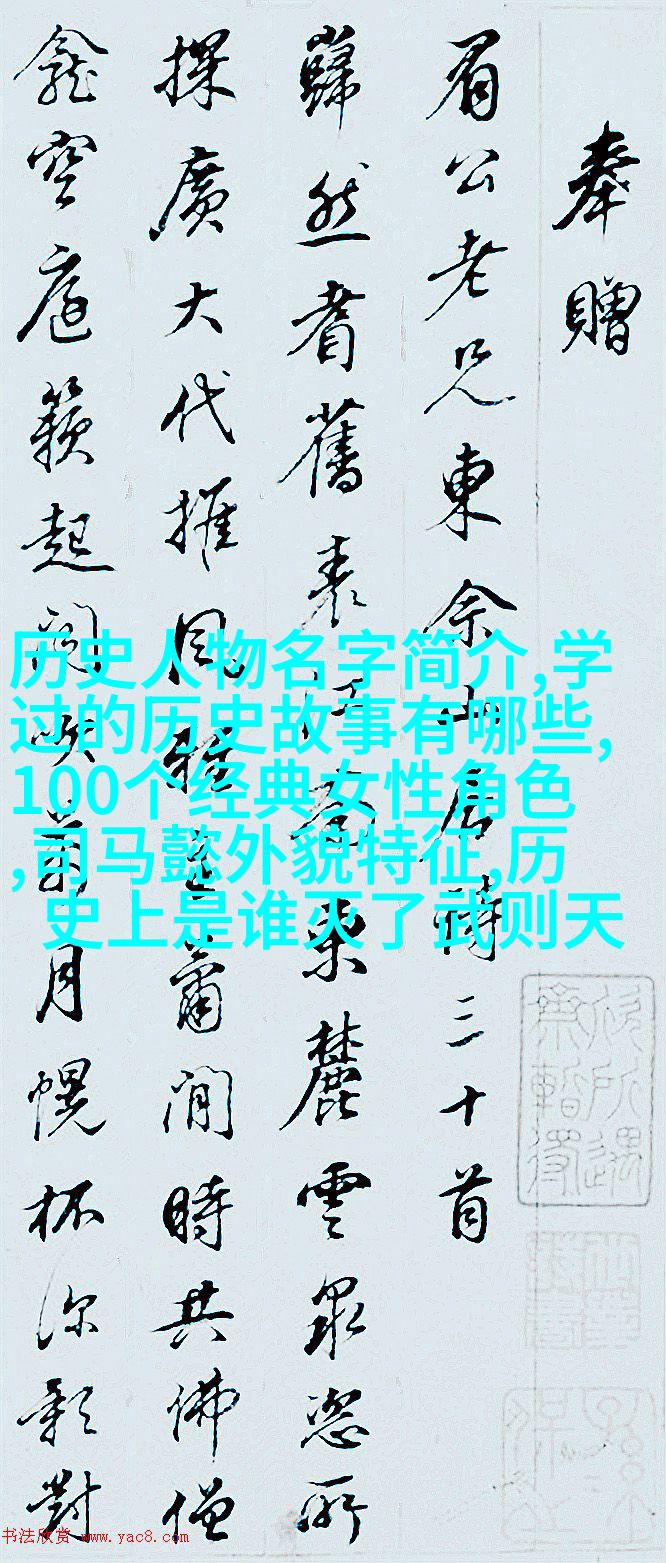 奉贈
眉公老兄東佘山居詩三十首
巋然耆舊表江南東麓雲泉恣所
探廣大代推風雅蕭閒時共佛僧
龕空庭籟起月幌杯深影對
历史人物名字简介,学
过的历史故事有哪些,
100个经典女性角色
,司马懿外貌特征,历
史上是谁灭了武则天
书法欣赏 www.yac8.com